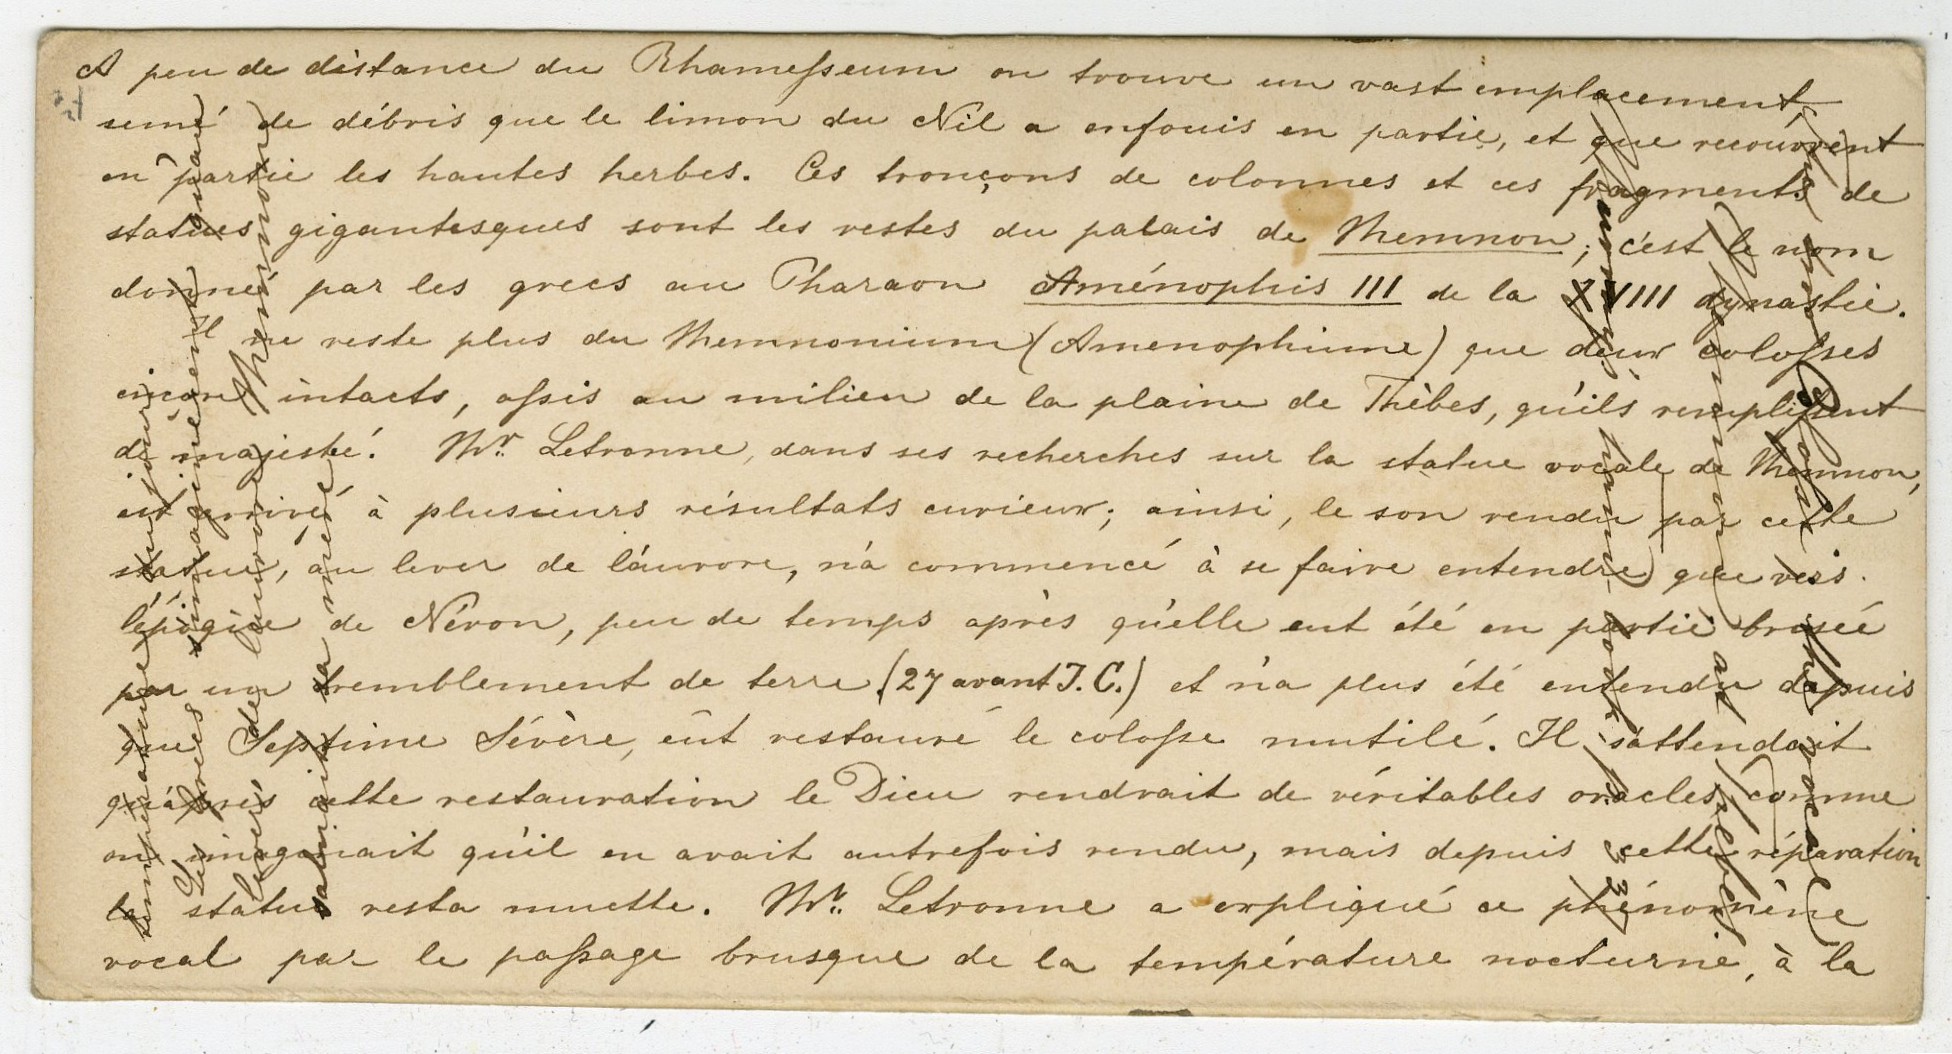 A peu de distance du Rhamesseum on trouve un vast emplacement,
semé de débris que le limon du Nil a enfouis en partie, et que recouvrent
en partie les hautes herbes. Ces tronçons de colonnes et ces fragments de
statues gigantesques sont les restes du palais de Memnon; c'est le nom
donné par les grecs au Pharaon Aménophis III de la XVIII dynastie.
Il ne reste plus du Memnonium (Amenophium) que deux colosses
encore intacts, assis au milieu de la plaine de Thèbes, qu'ils remplissent
de majesté. Mr. Letronne, dans ses recherches sur la statue vocale de Memnon,
est arrivé à plusieurs résultats curieux; ainsi, le son rendu par cette
statue, au lever de l'aurore, n'a commencé à se faire entendre que vers
l'époque de Néron, peu de temps après qu'elle eut été en partie brisée
par un tremblement de terre (27 avant J. C.) et n'a plus été entendu depuis
que Septime Sévère, eût restauré le colosse mutilé. Il s'attendait
qu'après cette restauration le Dieu rendrait de véritables oracles, comme
on imaginait qu'il en avait autrefois rendu, mais depuis cette réparation
la statue resta muette. Mr. Letronne a expliqué ce phénomène
vocal par le passage brusque de la température nocturne, à la
température du jour.
Les grecs s'imaginèrent que
lever de l'aurore Memnon
saluait sa mère